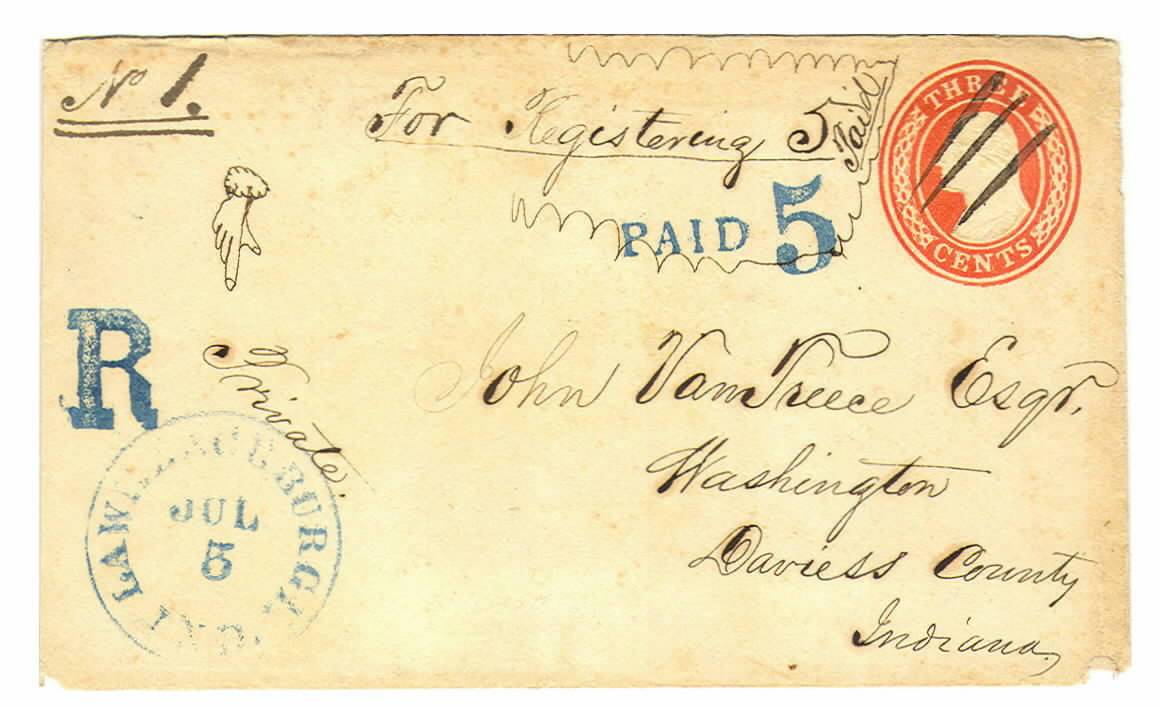 No 1.
For Registering 5 Paid
THREE
CENTS
PAID 5
R
Private.
LAWRENCEBURGH
JUL
5
IND.
John VanTreece Esqr.
Washington
Daviess County
Indiana